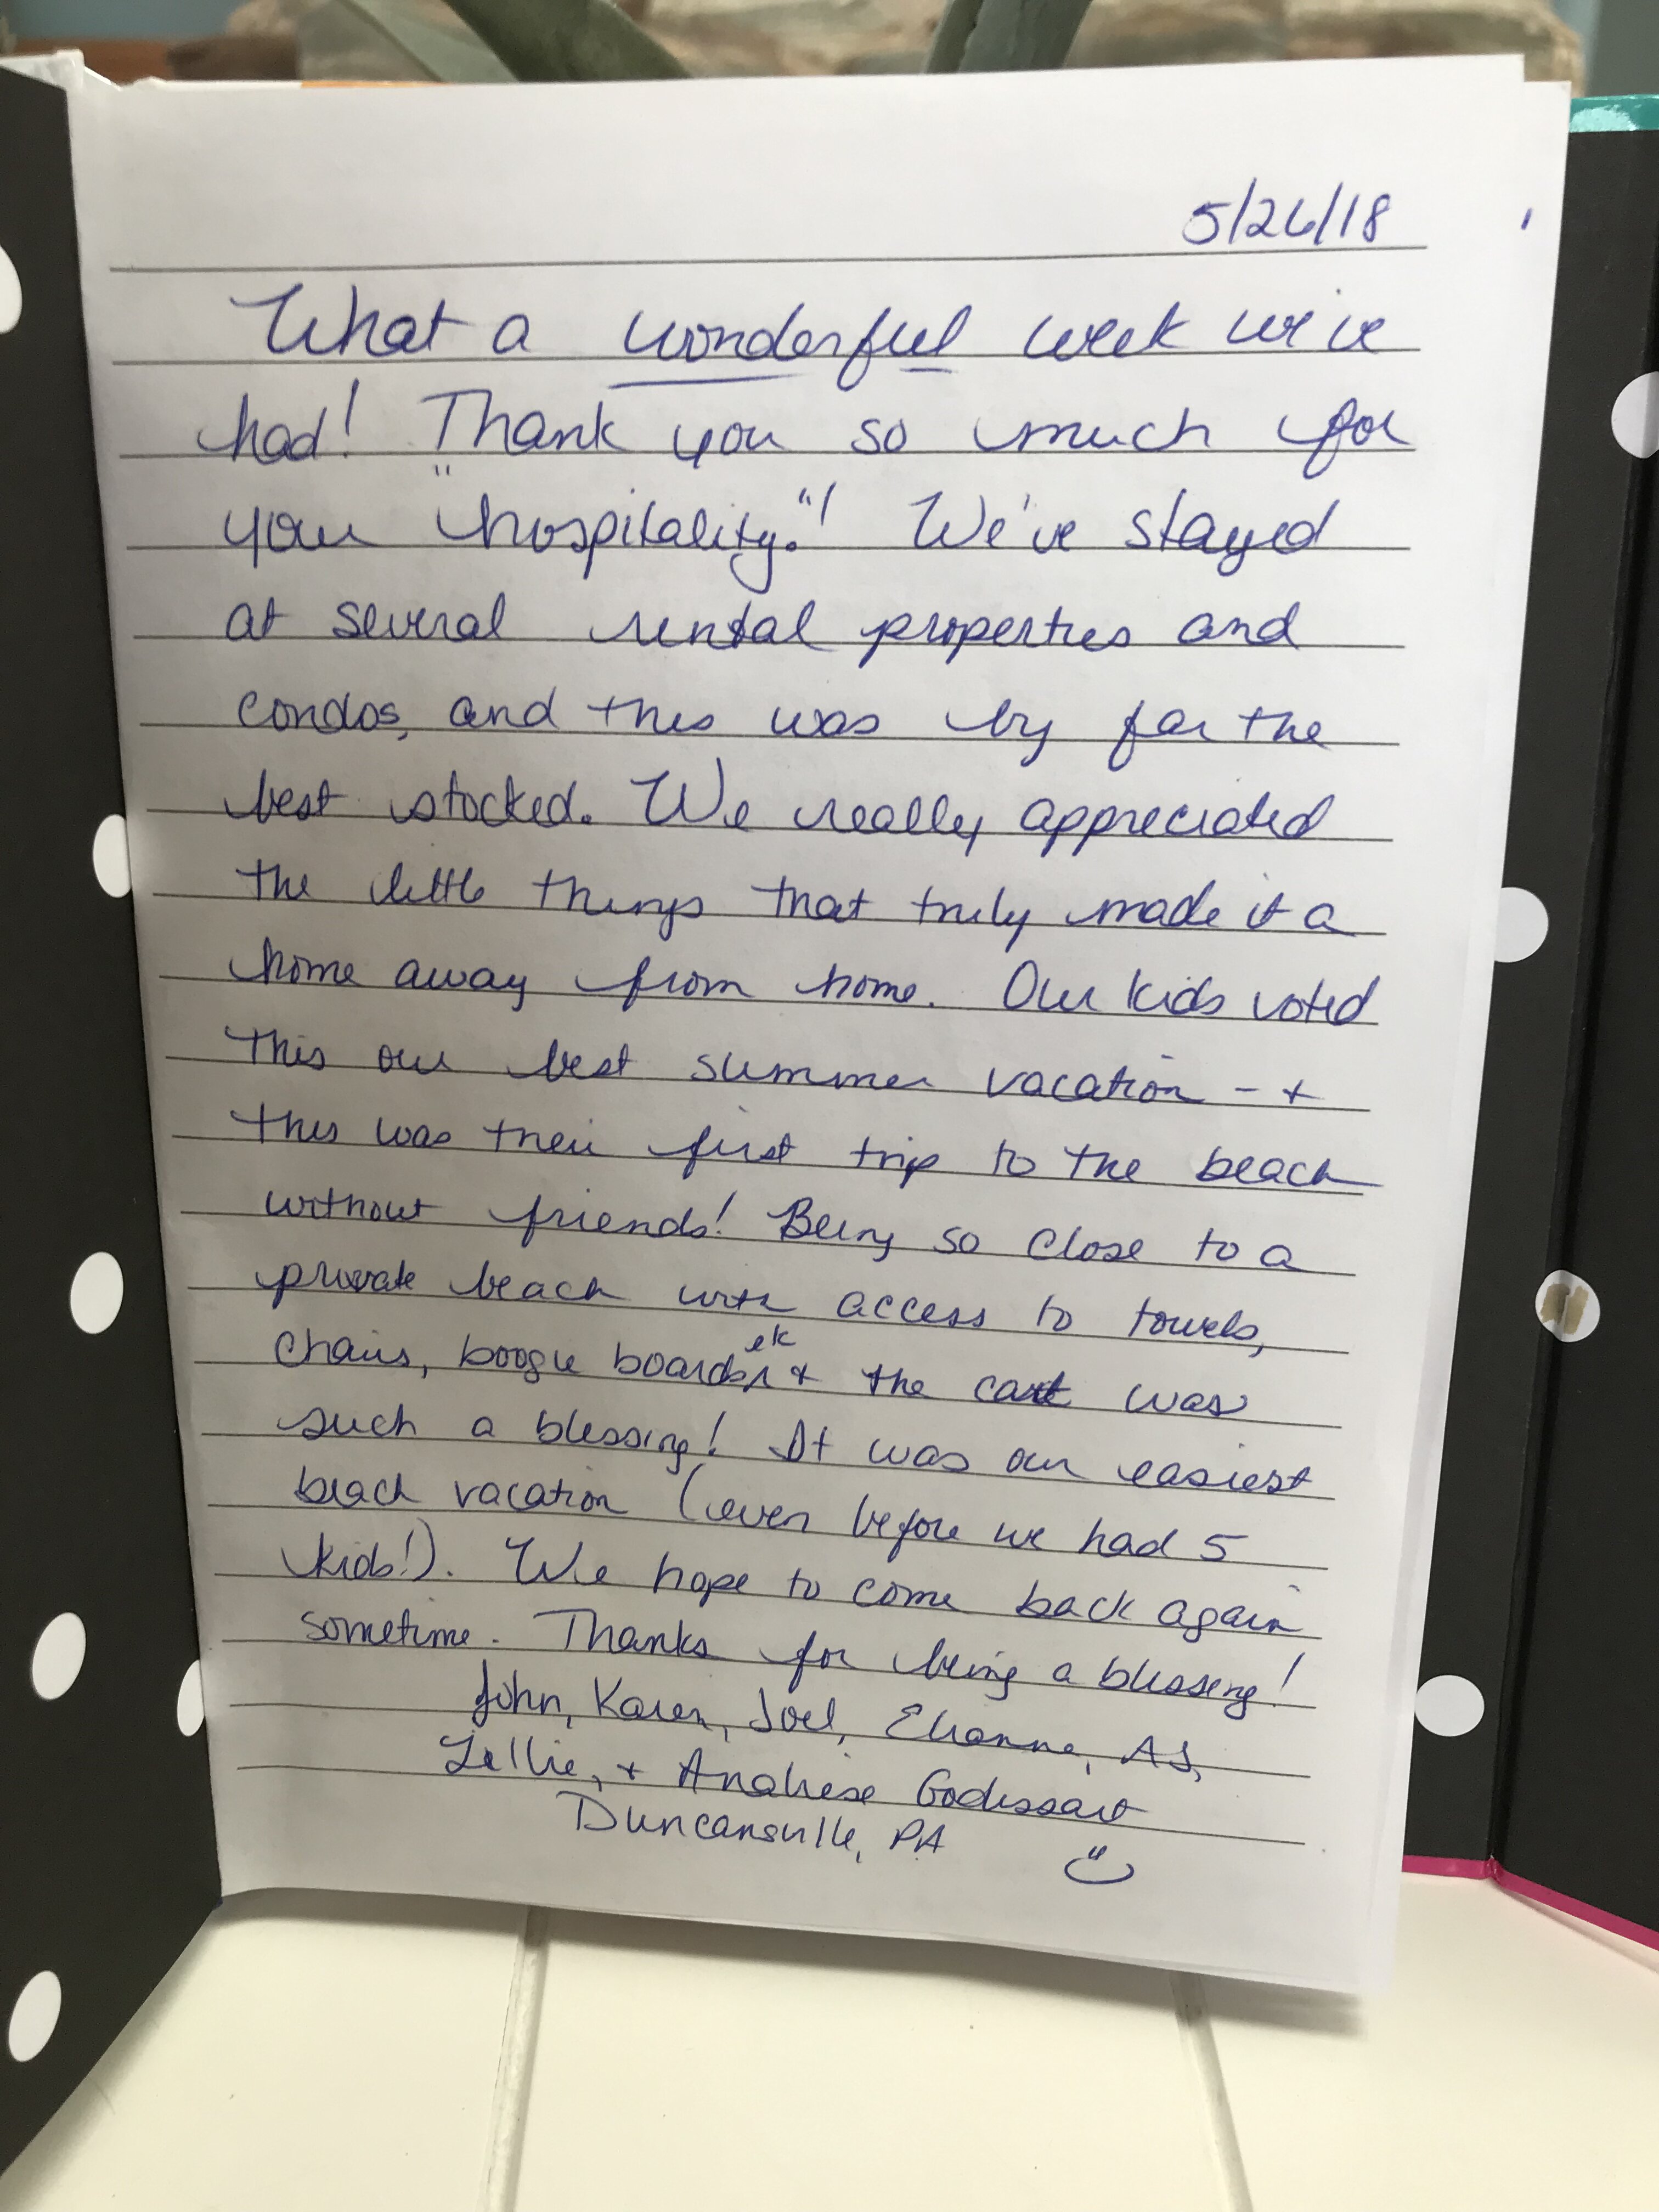 5/26/18
What a wonderful week we've
had! Thank you so much for
your "hospitality."! We've stayed
at several rental properties and
condos, and this was by far the
best stocked. We really appreciated
the little things that truly made it a
home away from home. Our kids voted
this our best summer vacation - +
this was their first trip to the beach
without friends! Being so close to a
private beach with access to towels,
chairs, boogie boards, etc + the cart was
such a blessing! It was our easiest
beach vacation (even before we had 5
kids!). We hope to come back again
sometime. Thanks for being a blessing!
John, Karen, Joel, Elianna, AJ,
Lellie, + Analiese Godissart
Duncansville, PA